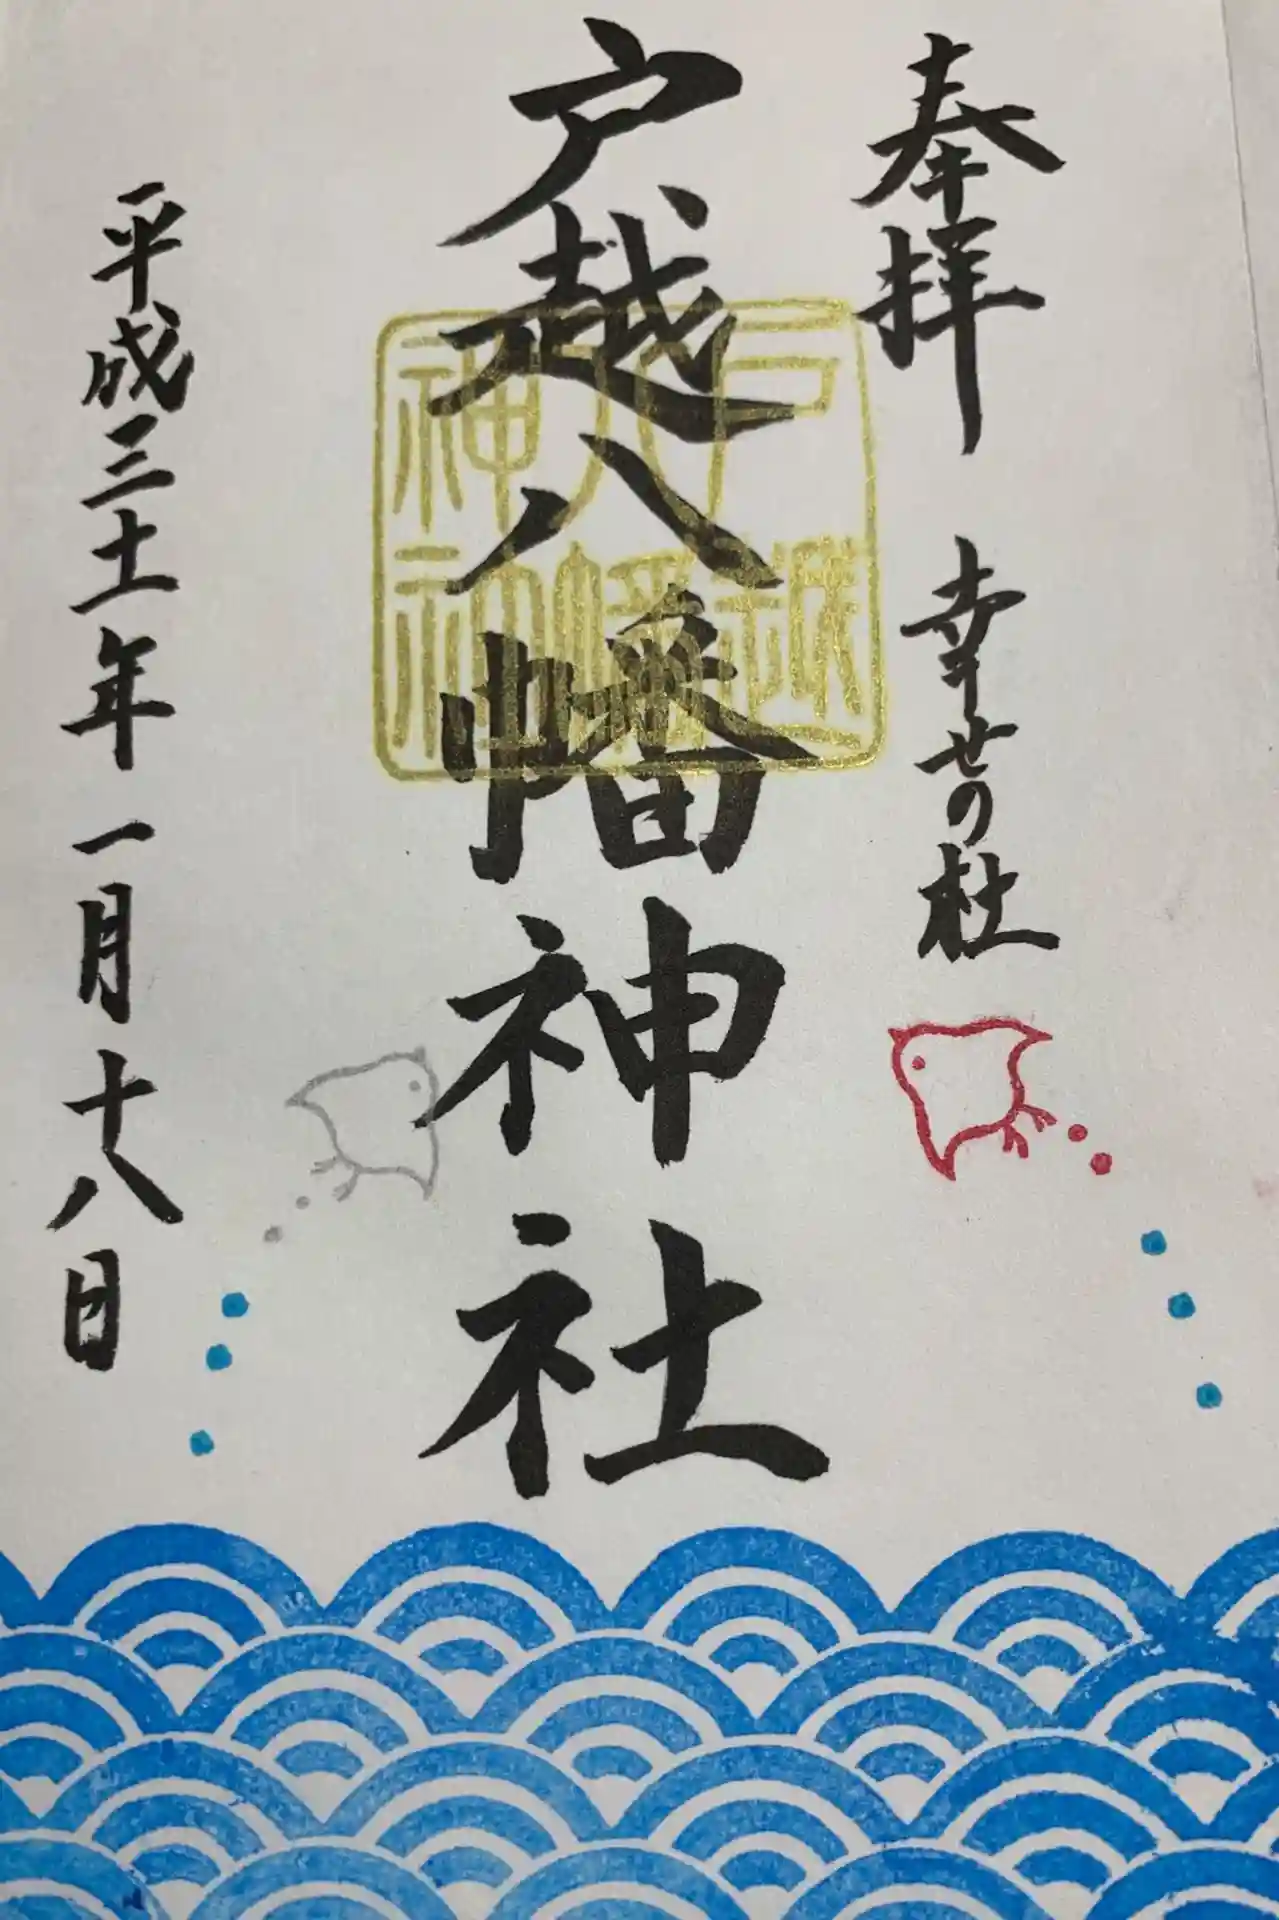 奉拝 幸せの杜
戸越八幡神社
戸越
八幡
神社
平成三十一年一月十八日